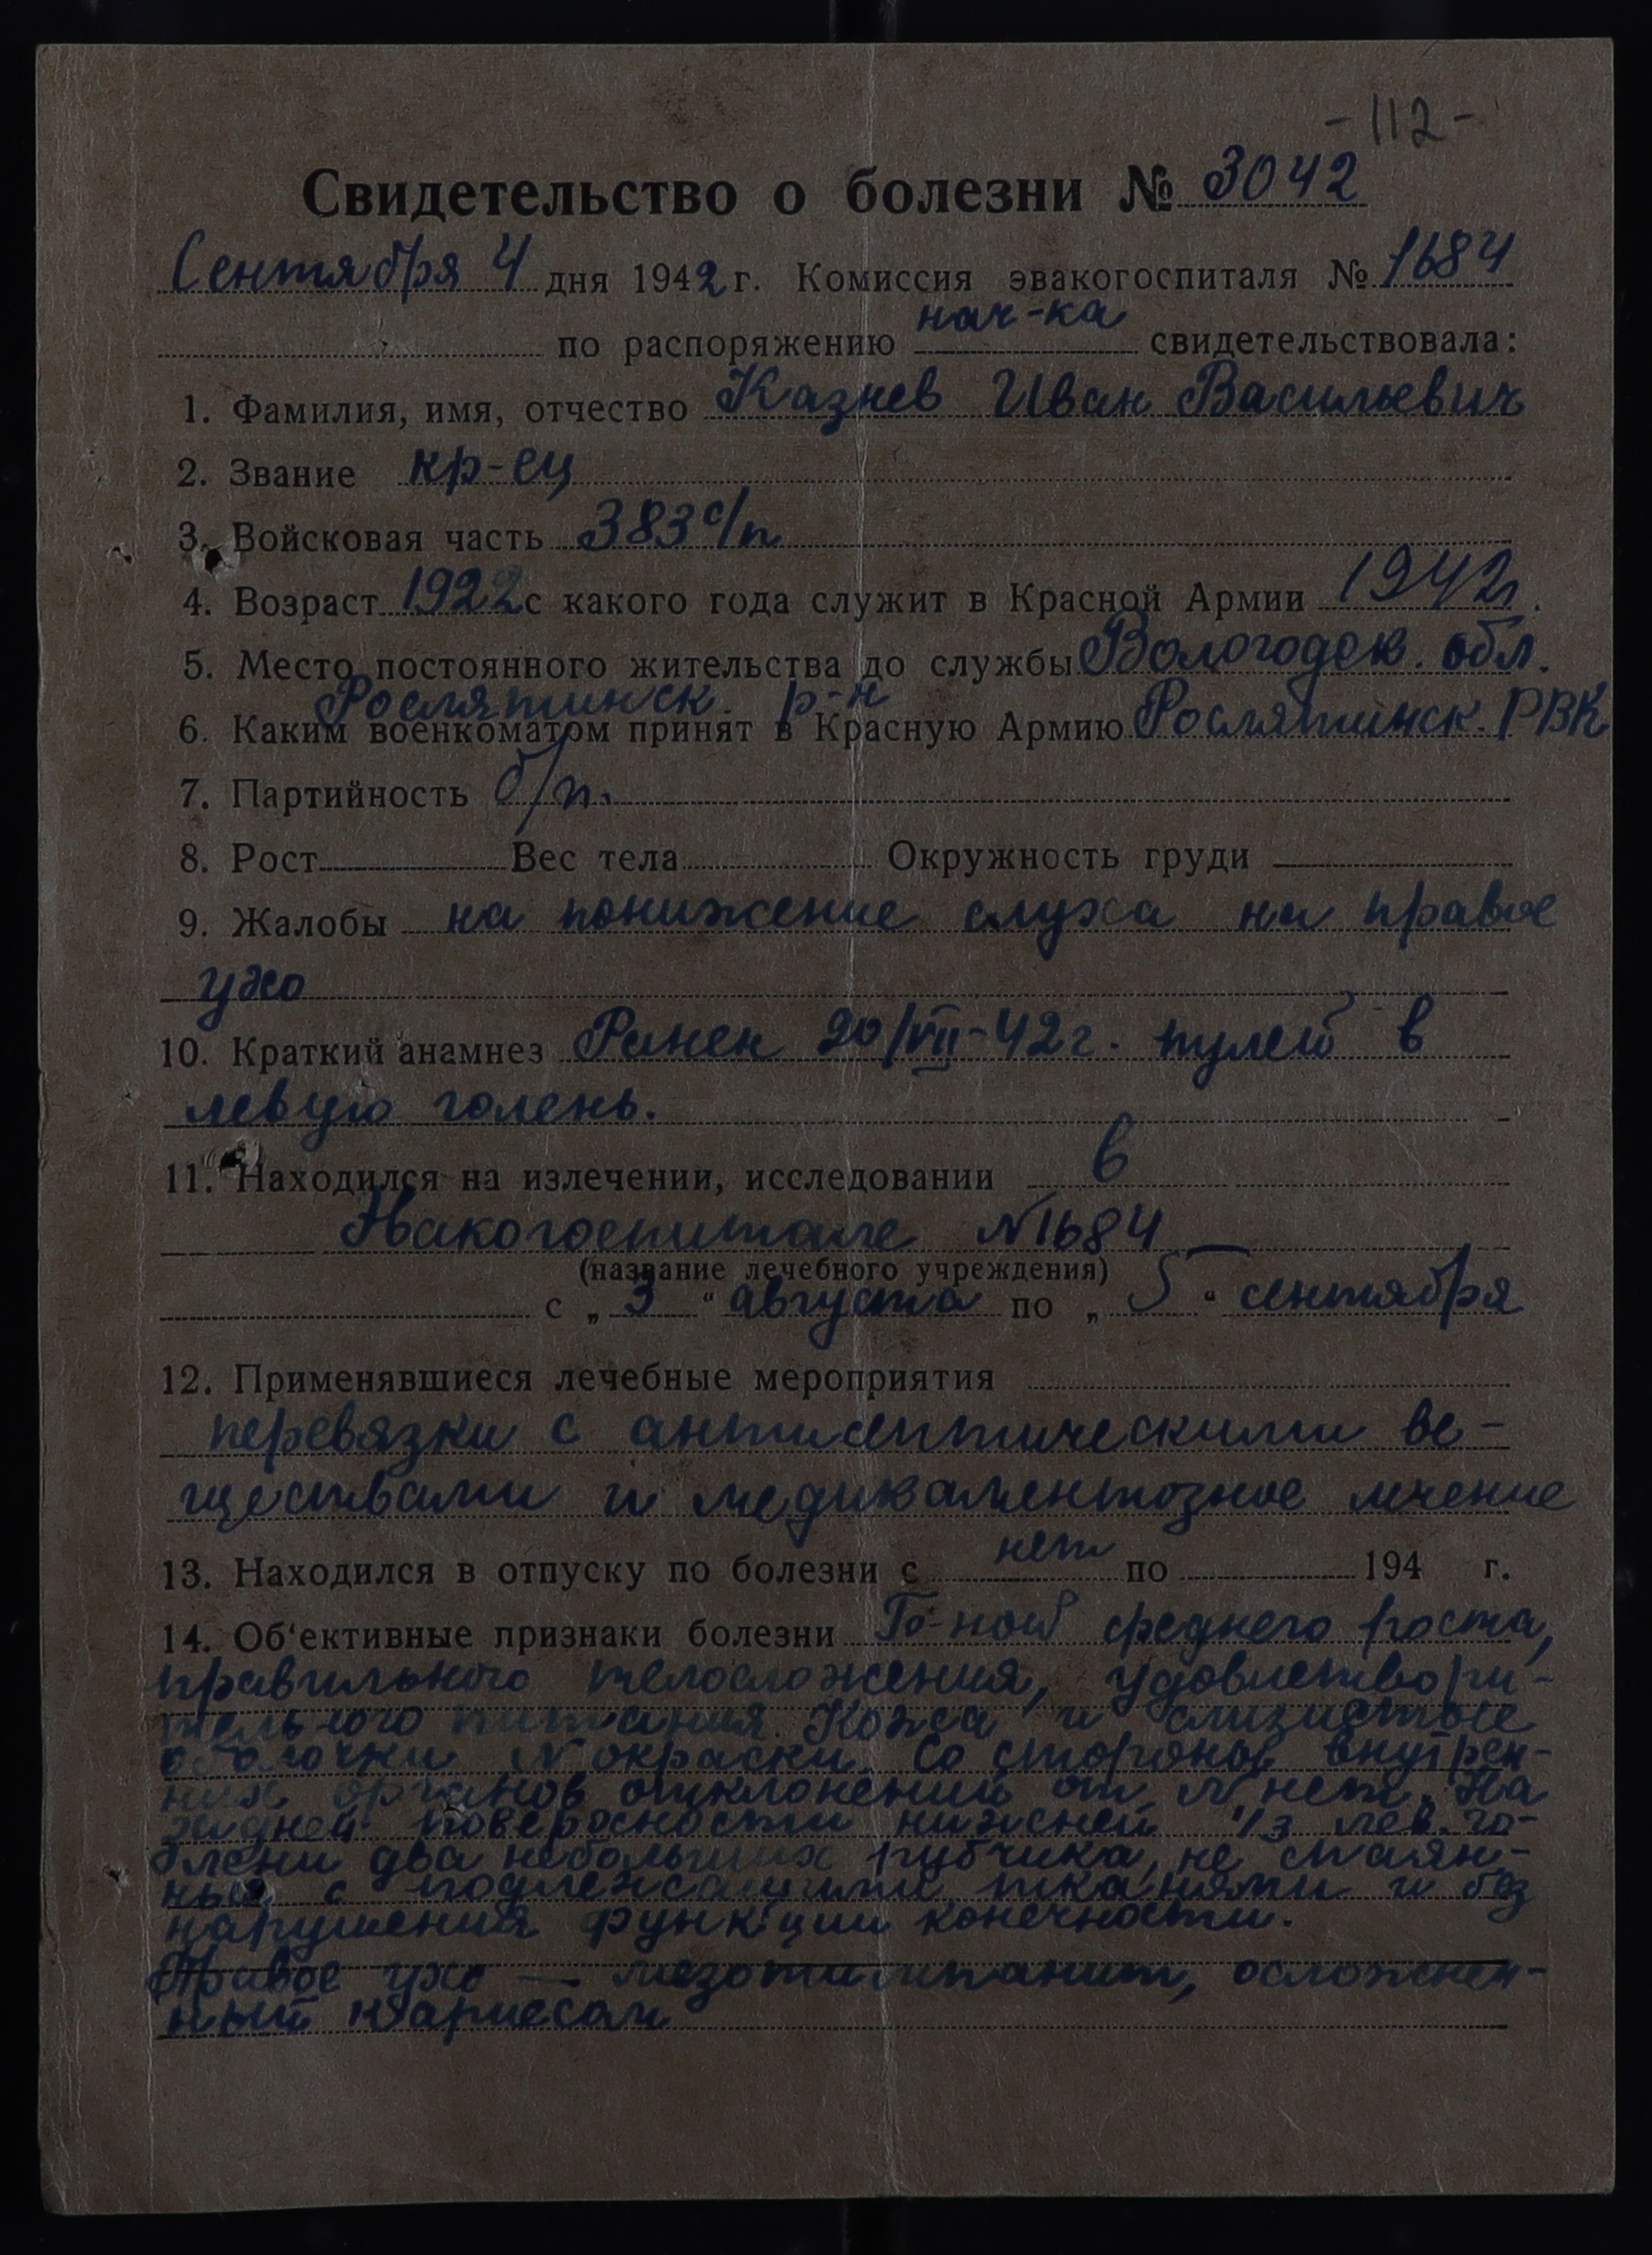 - 112 -
Свидетельство о болезни № 3042
Сентября 4 дня 1942 г. Комиссия эвакогоспиталя № 1684
по распоряжению нач-ка свидетельствовала:
1. Фамилия, имя, отчество Казнев Иван Васильевич
2. Звание кр-ец
3. Войсковая часть 383 с/п
4. Возраст 1922 с какого года служит в Красной Армии 1942г.
5. Место постоянного жительства до службы Вологодск. обл.
Рослятинск. р-н
6. Каким военкоматом принят в Красную Армию Рослятинск. РВК
7. Партийность б/п.
8. Рост Вес тела Окружность груди
9. Жалобы на понижение слуха на правое
ухо
10. Краткий анамнез Ранен 20/VII-42г. пулей в
левую голень.
11. Находился на излечении, исследовании в
Эвакогоспитале №1684
(название лечебного учреждения)
с „ 3 “ августа по „ 5 “ сентября
12. Применявшиеся лечебные мероприятия
перевязки с антисептическими ве-
ществами и медикаментозное лечение
13. Находился в отпуску по болезни с нет по 194 г.
14. Об'ективные признаки болезни Б-ной среднего роста,
правильного телосложения, удовлетвори-
тельного питания. Кожа и слизистые
оболочки N окраски. Со стороны внутрен-
них органов отклонений от N нет. На
задней поверхности нижней 1/3 лев. го-
лени два небольших рубчика, не спаян-
ных с подлежащими тканями и без
нарушения функции конечности.
Правое ухо — мезотимпанит, осложнен-
ный кариесом